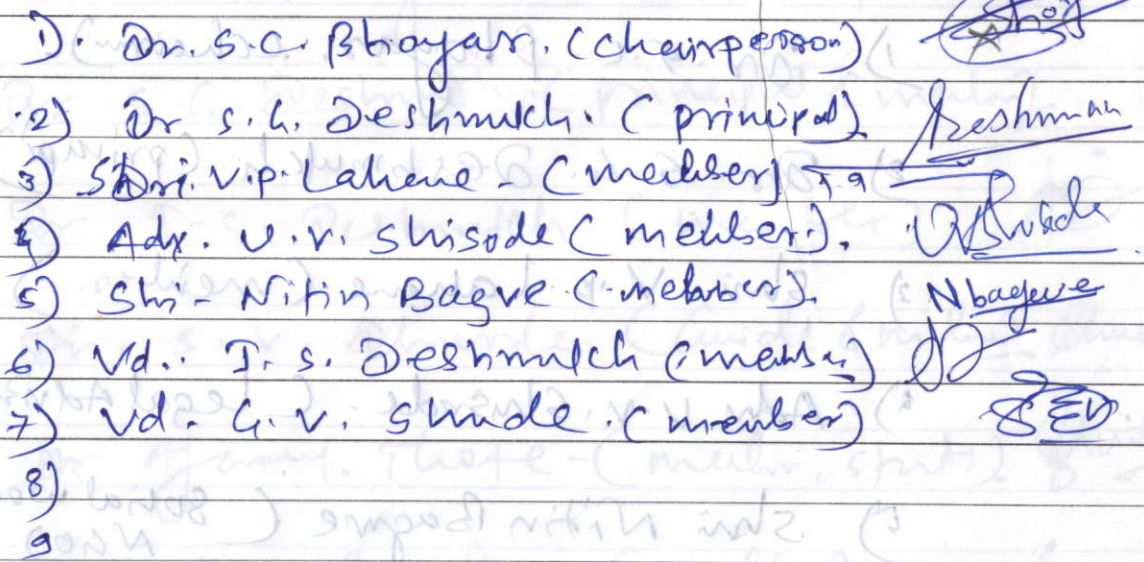 1). Dr. S. C. Bhoyar. (Chairperson)
2) Dr S. G. Deshmukh. (principal) Deshmukh
3) Shri. V. P. Lahane - (member)
4) Adv. V. V. Shisode (member).
5) Shri - Nitin Bagve (member). Nbagve
6) Vd. I. S. Deshmukh (member)
7) Vd. G. V. Shinde. (member)
8)
9